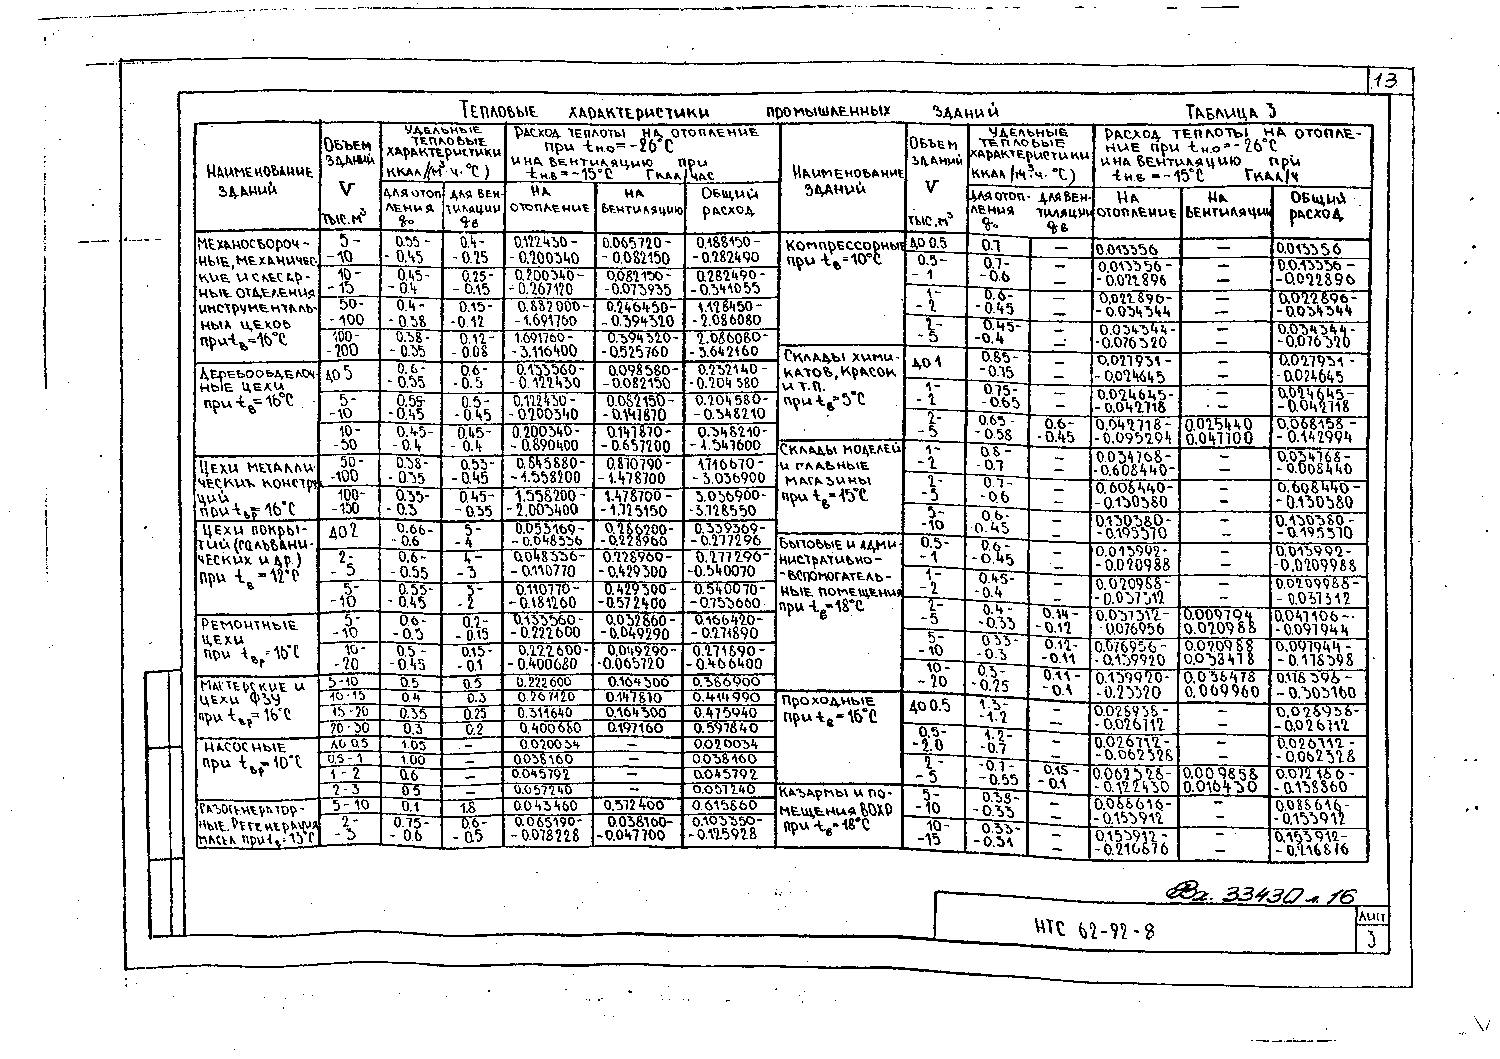 13
Тепловые характеристики промышленных зданий Таблица 3
Наименование зданий
Объем зданий V тыс.м³
Удельные тепловые характеристики ккал/(м³ч.°С)
для отопления q₀
для вентиляции qв
Расход теплоты на отопление при tн.о=-26°С и на вентиляцию при tн.в=-15°С Гкал/час
на отопление
на вентиляцию
общий расход
Механосбороч-
ные, механичес
кие и слесар-
ные отделения
инструменталь-
ных цехов
при tв=16°С
5- -10 0.55- -0.45 0.4- -0.25 0.122430- -0.200340 0.065720- -0.082150 0.188150- -0.282490
10- -15 0.45- -0.4 0.25- -0.15 0.200340- -0.267120 0.082150- -0.073935 0.282490- -0.341055
50- -100 0.4- -0.38 0.15- -0.12 -1.691760 0.246450- -0.394320 1.128450- -2.086080
100- -200 0.38- -0.35 0.12- -0.08 1.691760- -3.116400 0.394320- -0.525760 2.086080- -3.642160
Деревообделоч
ные цехи
при tв=16°С
до 5 0.6- -0.55 0.6- -0.5 0.133560- -0.122430 0.098580- -0.082150 0.232140- -0.204580
5- -10 0.55- -0.45 0.5- -0.45 0.122430- -0.200340 0.082150- -0.147870 0.204580- -0.348210
10- -50 0.45- -0.4 0.45- -0.4 0.200340- -0.890400 0.147870- -0.657200 0.348210- -1.547600
Цехи металли
ческих констру
ций
при tвр=16°С
50- -100 0.38- -0.35 0.53- -0.45 0.845880- -1.558200 0.870790- -1.478700 1.716670- -3.036900
100- -150 0.35- -0.3 0.45- -0.35 1.558200- -2.003400 1.478700- -1.725150 3.036900- -3.728550
Цехи покры-
тий (гальвани-
ческих и др.)
при tв=12°С
до 2 0.66- -0.6 5- -4 0.053169- -0.048336 0.286200- -0.228960 0.339369- -0.277296
2- -5 0.6- -0.55 4- -3 0.048336- -0.110770 0.228960- -0.429300 0.277296- -0.540070
5- -10 0.55- -0.45 3- -2 0.110770- -0.181260 0.429300- -0.572400 0.540070- -0.753660
Ремонтные
цехи
при tвр=16°С
5- -10 0.6- -0.5 0.2- -0.15 0.133560- -0.222600 0.032860- -0.049290 0.166420- -0.271890
10- -20 0.5- -0.45 0.15- -0.1 0.222600- -0.400680 0.049290- -0.065720 0.271890- -0.466400
Мастерские и
цехи ФЗУ
при tвр=16°С
5-10 0.5 0.5 0.222600 0.164300 0.386900
10-15 0.4 0.3 0.267120 0.147870 0.414990
15-20 0.35 0.25 0.311640 0.164300 0.475940
20-30 0.3 0.2 0.400680 0.197160 0.597840
Насосные
при tвр=10°С
до 0.5 1.05 — 0.020034 — 0.020034
0.5-1 1.00 — 0.038160 — 0.038160
1-2 0.6 — 0.045792 — 0.045792
2-3 0.5 — 0.057240 — 0.057240
Газогенератор-
ные, регенерация
масел при tв=15°С
5-10 0.1 1.8 0.043460 0.572400 0.615860
2- -3 0.75- -0.6 0.6- -0.5 0.065190- -0.078228 0.038160- -0.047700 0.103350- -0.125928
Наименование зданий
Объем зданий V тыс.м³
Удельные тепловые характеристики ккал/(м³ч.°С)
для отопления q₀
для вентиляции qв
Расход теплоты на отопление при tн.о=-26°С и на вентиляцию при tн.в=-15°С Гкал/ч
на отопление
на вентиляции
общий расход
Компрессорные
при tв=10°С
до 0.5 0.7 — 0.013356 — 0.013356
0.5- -1 0.7- -0.6 — 0.013356- -0.022896 — 0.013356- -0.022896
1- -2 0.6- -0.45 — 0.022896- -0.034344 — 0.022896- -0.034344
2- -5 0.45- -0.4 — 0.034344- -0.076320 — 0.034344- -0.076320
Склады хими-
катов, красок
и т.п.
при tв=5°С
до 1 0.85- -0.75 — 0.027931- -0.024645 — 0.027931- -0.024645
1- -2 0.75- -0.65 — 0.024645- -0.042718 — 0.024645- -0.042718
2- -5 0.65- -0.58 0.6- -0.45 0.042718- -0.095294 0.025440 0.047700 0.068158- -0.142994
Склады моделей
и главные
магазины
при tв=15°С
1- -2 0.8- -0.7 — 0.034768- -0.608440- — 0.034768- -0.008440
2- -5 0.7- -0.6 — 0.608440- -0.130380 — 0.608440- -0.130380
5- -10 0.6- 0.45 — 0.130380- -0.195570 — 0.130380- -0.195570
Бытовые и адми-
нистративно-
-вспомогатель-
ные помещения
при tв=18°С
0.5- -1 0.6- -0.45 — 0.013992- -0.020988 — 0.013992- -0.0209988
1- -2 0.45- -0.4 — 0.020988- -0.037312 — 0.0209988- -0.037312
2- -5 0.4- -0.33 0.14- -0.12 0.037312- -0.076956 0.009794 0.020988 0.047106- -0.097944
5- -10 0.33- -0.3 0.12- -0.11 0.076956- -0.139920 0.020988 0.038478 0.097944- -0.178398
10- -20 0.3- -0.25 0.11- -0.1 0.139920- -0.23320 0.038478 0.069960 0.178398- -0.303160
Проходные
при tв=16°С
до 0.5 1.3- -1.2 — 0.028938- -0.026712 — 0.028938- -0.026712
0.5- -2.0 1.2- -0.7 — 0.026712- -0.062328 — 0.026712- -0.062328
2- -5 -0.7- -0.55 0.15- -0.1 0.062328- -0.122430 0.009858 0.016430 0.072186- -0.138860
Казармы и по-
мещения ВОХР
при tв=18°С
5- -10 0.38- -0.33 — 0.088616- -0.153912 — 0.088616- -0.153912
10- -15 0.33- -0.31 — 0.153912- -0.216876 — 0.153912- -0.216876
Вл. 33430 л. 16
НТС 62-92-8
Лист
3